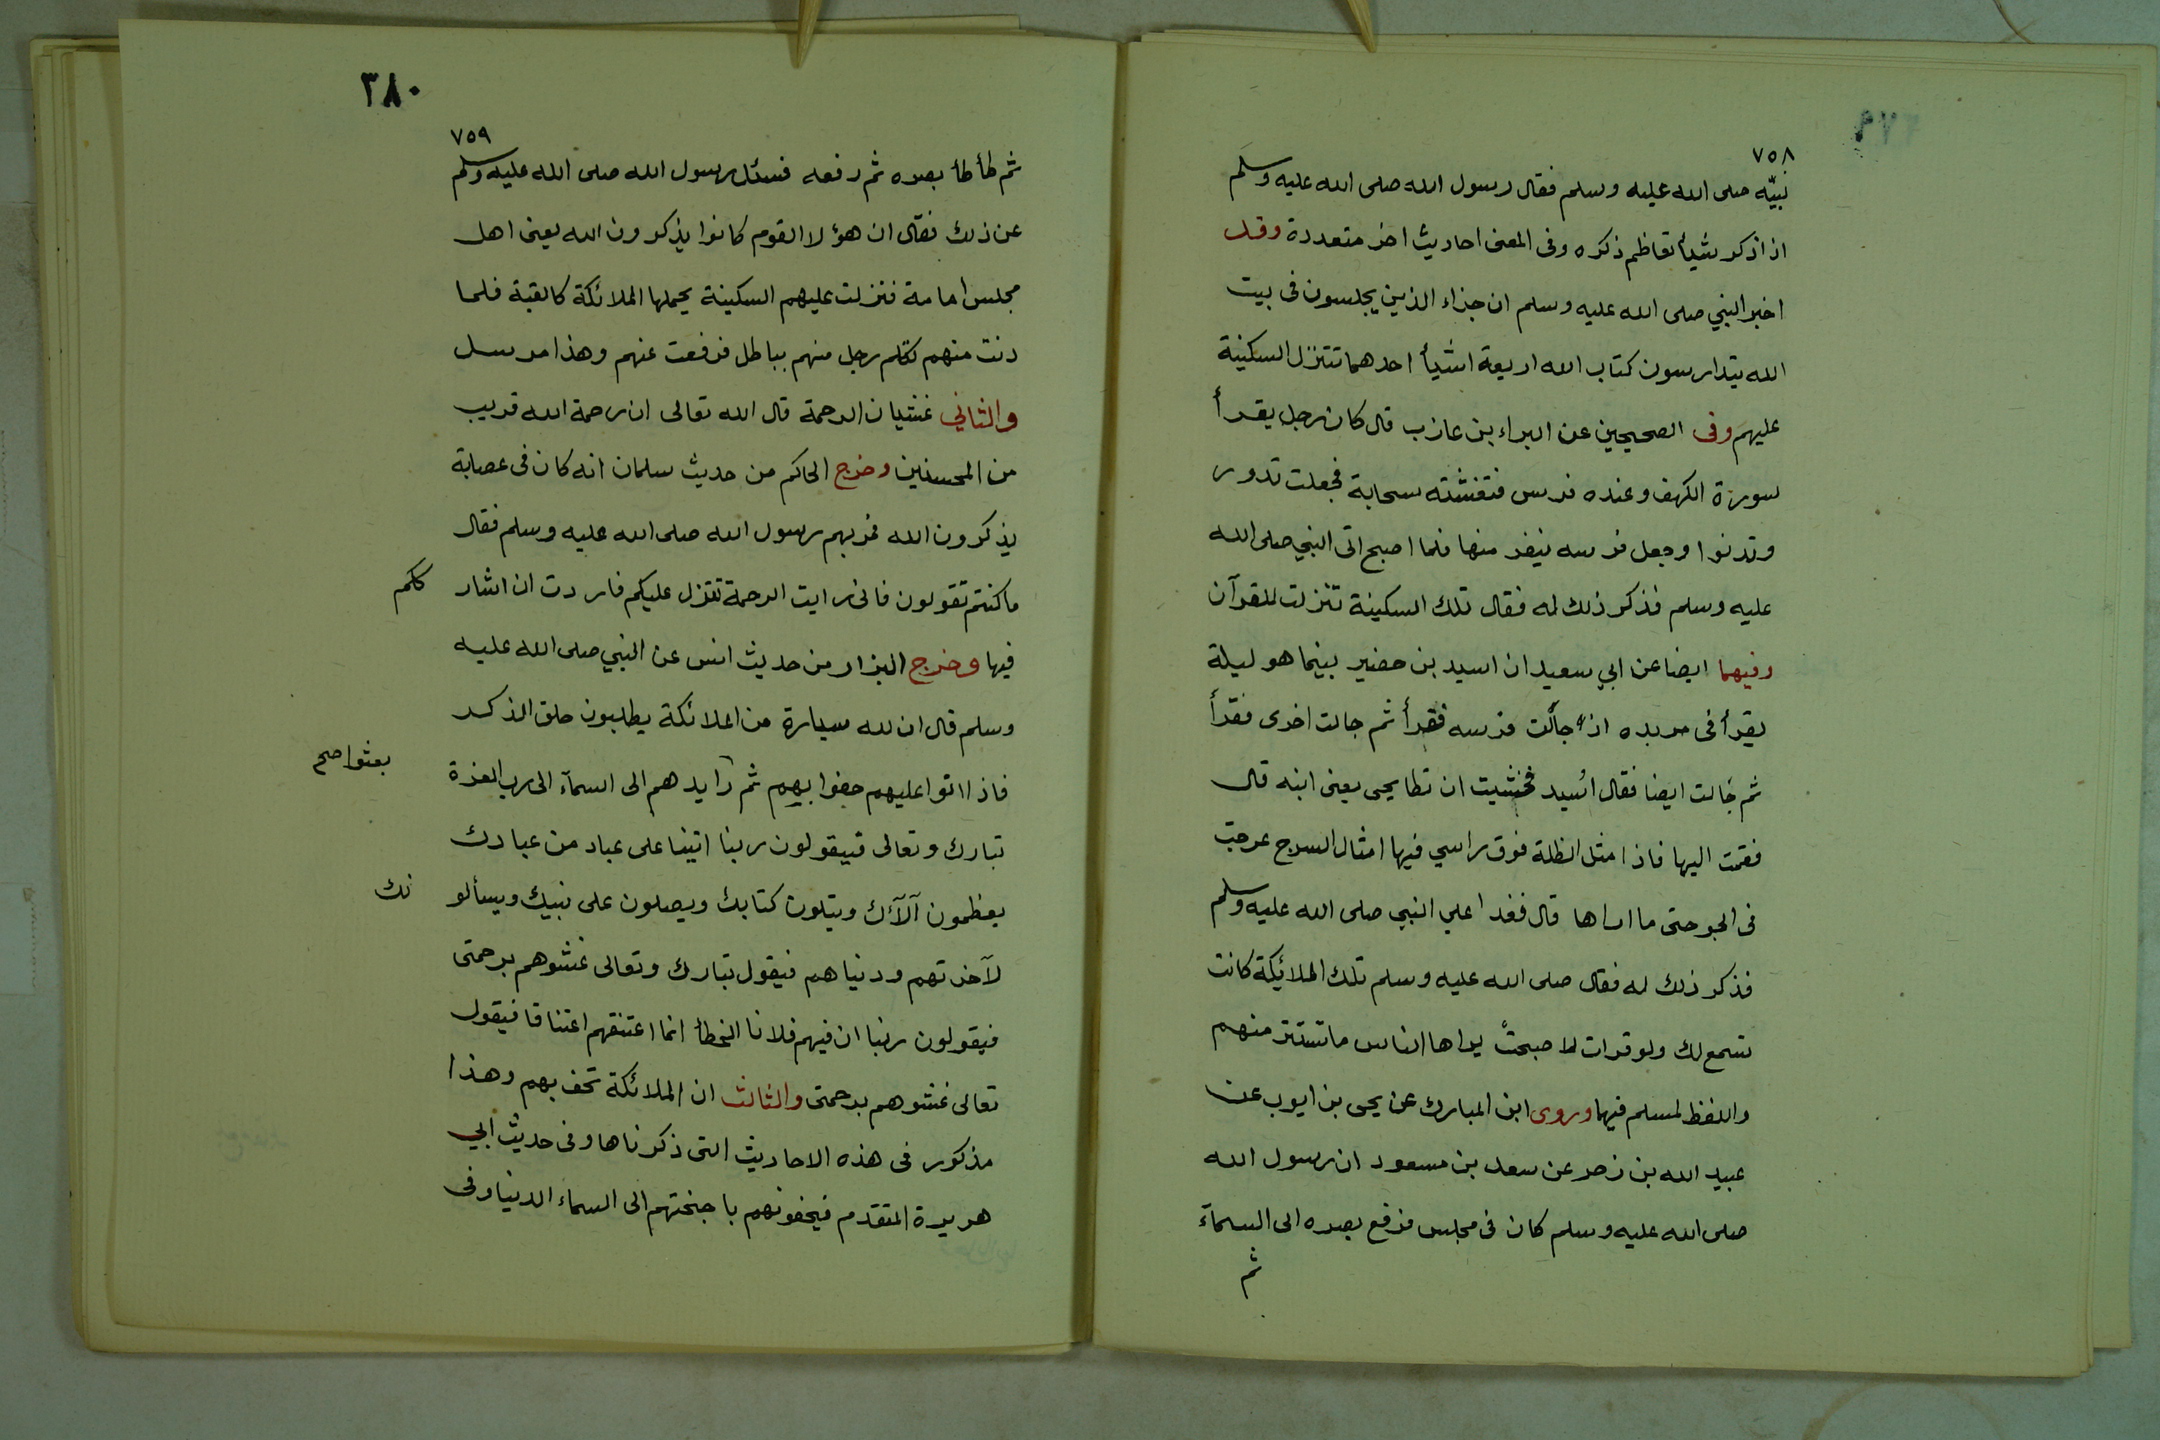 ٧٥٨
نبيّه صلى الله عليه وسلم فقال رسول الله صلى الله عليه وسلم
اذا ذكر شيأ تعاظم ذكره وفى المعنى احاديث اخر متعددة وقد
اخبر النبي صلى الله عليه وسلم ان جزاء الذين يجلسون فى بيت
الله يتدارسون كتاب الله اربعة اشيأ احدهما تتنزل السكينة
عليهم وفى الصحيحين عن البراء بن عازب قال كان رجل يقرأ
سورة الكهف وعنده فرس فتغشته سحابة فجعلت تدور
وتدنوا وجعل فرسه ينفر منها فلما اصبح اتى النبي صلى الله
عليه وسلم فذكر ذلك له فقال تلك السكينة تنزلت للقرآن
وفيهما ايضا عن ابي سعيد ان اسيد بن حضير بينما هو ليلة
يقرأ فى مربده اذ جالت فرسه فقرأ ثم جالت اخرى فقرأ
ثم جالت ايضا فقال اسيد فخشيت ان تطا يحى يعنى ابنه قال
فقمت اليها فاذا مثل الظلة فوق راسي فيها امثال السرج عرجت
فى الجو حتى ما اراها قال فغدا علي النبي صلى الله عليه وسلم
فذكر ذلك له فقال صلى الله عليه وسلم تلك الملائكة كانت
تسمع لك ولو قرات لاصبحت يراها الناس ما تستتر منهم
واللفظ لمسلم فيها وروى ابن المبارك عن يحى بن ايوب عن
عبيد الله بن زحر عن سعد بن مسعود ان رسول الله
صلى الله عليه وسلم كان فى مجلس فرفع بصره الى السمآء
ثم
٣٨٠
٧٥٩
ثم طأطأ بصره ثم رفعه فسئل رسول الله صلى الله عليه وسلم
عن ذلك فقال ان هؤلا القوم كانوا يذكرون الله يعنى اهل
مجلس امامة فنزلت عليهم السكينة يحملها الملائكة كالقبة فلما
دنت منهم تكلم رجل منهم بباطل فرفعت عنهم وهذا مرسل
والثاني غشيان الرحمة قال الله تعالى ان رحمة الله قريب
من المحسنين وخرج الحاكم من حديث سلمان انه كان فى عصابة
يذكرون الله فمر بهم رسول الله صلى الله عليه وسلم فقال
ما كنتم تقولون فانى رايت الرحمة تتنزل عليكم فاردت ان اشار
ككم
فيها وخرج البزار من حديث انس عن النبي صلى الله عليه
وسلم قال ان لله سيارة من الملائكة يطلبون حلق الذكر
فاذا اتوا عليهم حفوا بهم ثم رايدهم الى السمآء الى رب العزة
بعثوا صح
تبارك وتعالى فيقولون ربنا اتينا على عباد من عبادك
يعظمون آلآءك ويتلون كتابك ويصلون على نبيك ويسألو
نك
لآخرتهم ودنياهم فيقول تبارك وتعالى غشوهم برحمتى
فيقولون ربنا ان فيهم فلانا الخطأ انما اعتنقهم اعتناقا فيقول
تعالى غشوهم برحمتى والثالث ان الملائكة تحف بهم وهذا
مذكور فى هذه الاحاديث التى ذكرناها وفى حديث ابي
هريرة المتقدم فيحفونهم باجنحتهم الى السماء الدنيا وفى